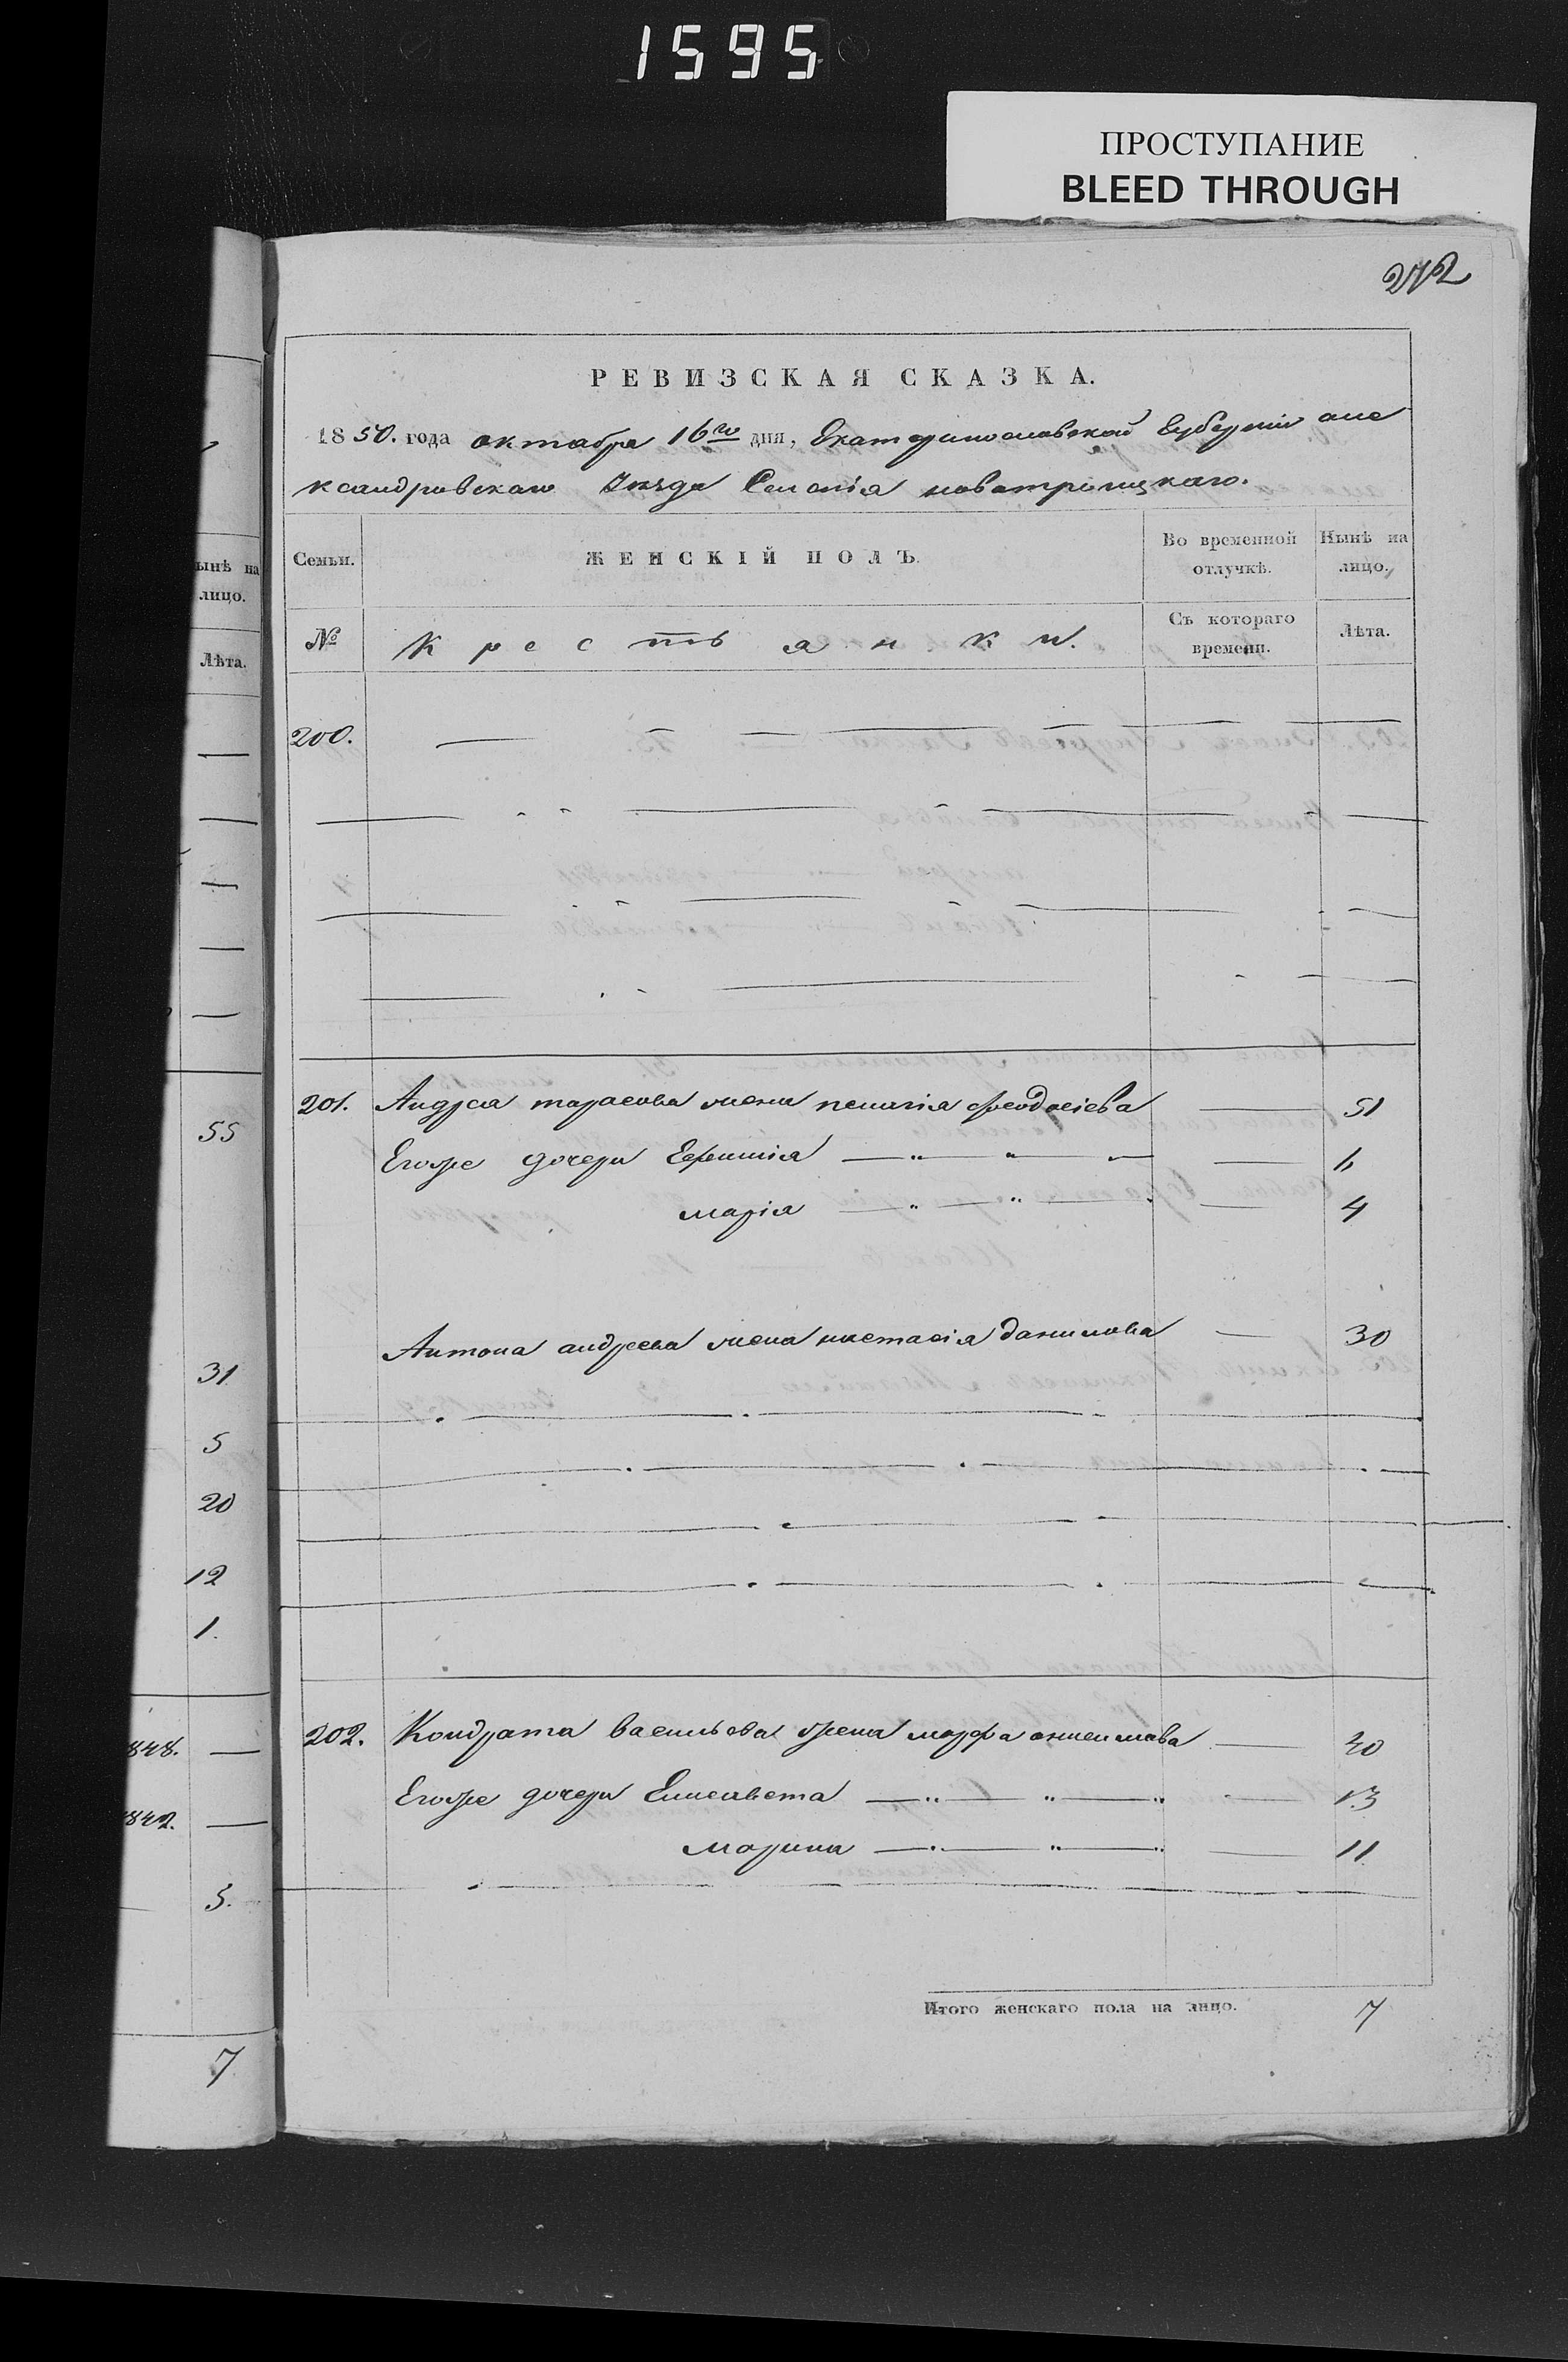 1595
ПРОСТУПАНИЕ
BLEED THROUGH
272
РЕВИЗСКАЯ СКАЗКА.
1850. года октабра 16го дня, Екатеринославской Губерніи але
ксандровскаго Уѣзда Селенія новотроицкаго.
Семьи. ЖЕНСКІЙ ПОЛЪ. Во временной отлучкѣ. Нынѣ на лицо.
№ Крестьянки. Съ котораго времени. Лѣта.
200.
201. Андрея тарасова жена пелагія феодосіева — 51
Егоже дочери Ефимія — " — " — — 6
марія — " — " — — 4
Антона андреева жена настасія данилова — 30
202. Кондрата васильева жена марфа анисимова — 40
Егоже дочери Елисавета — " — " — " — 13
марина — " — " — " — 11
Итого женскаго пола на лицо. 7
ынѣ на
лицо.
Лѣта.
55
31
5
20
12
1.
848. —
842. —
5.
7